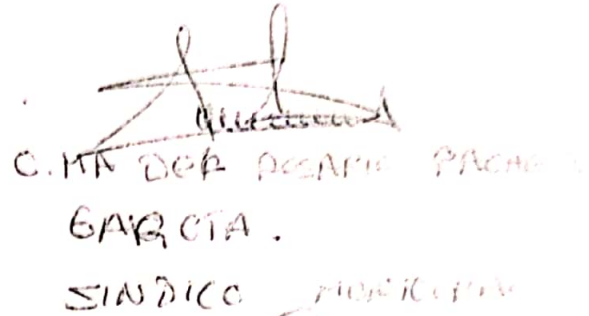 C. MA DEL ROSARIO PACHE
GARCIA.
SINDICO MUNICIPAL